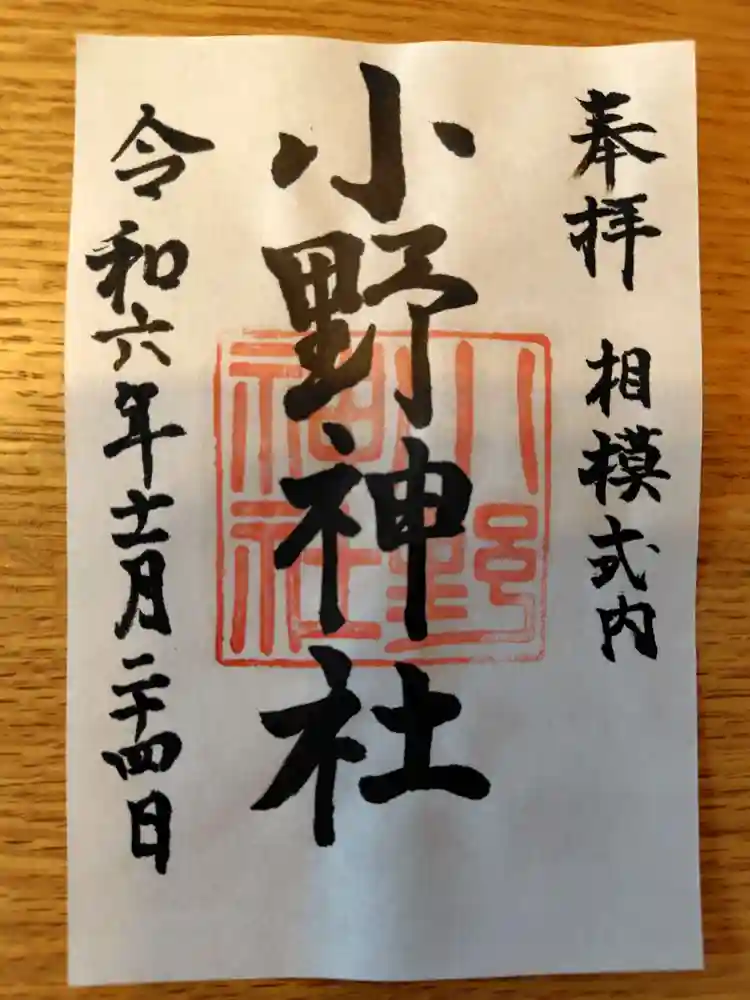 奉拝 相模式内
小野神社
小野神社
令和六年十一月二十四日